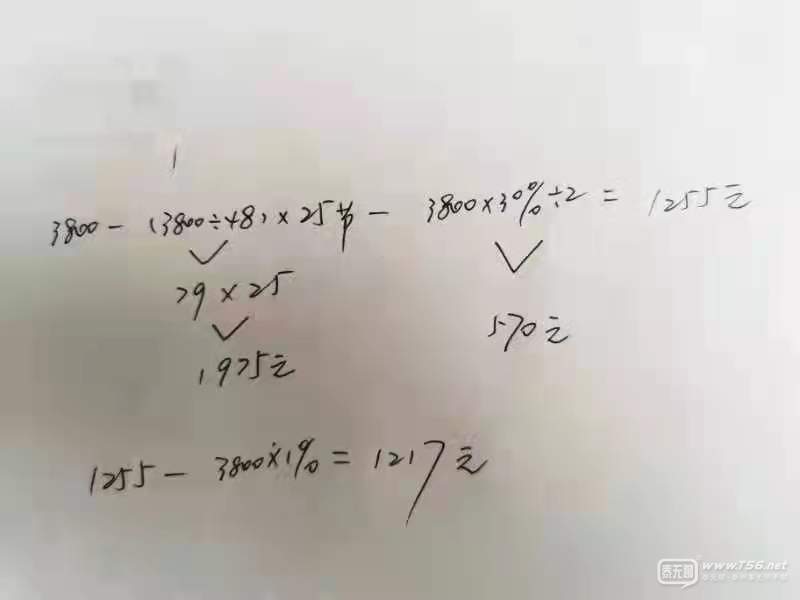 3800 - (3800÷48) × 25节 - 3800×30%÷2 = 1255元
79 × 25
570元
1975元
1255 - 3800×1% = 1217元
泰无聊 www.T56.net